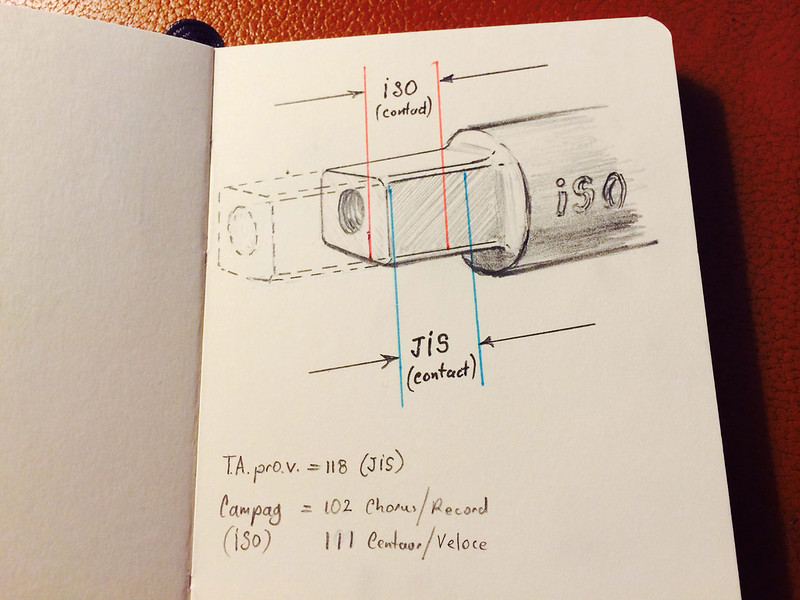 iSO
(contact)
iSO
JiS
(contact)
T.A. pro.v. = 118 (JiS)
Campag = 102 Chorus/Record
(iSO) 111 Centaur/Veloce